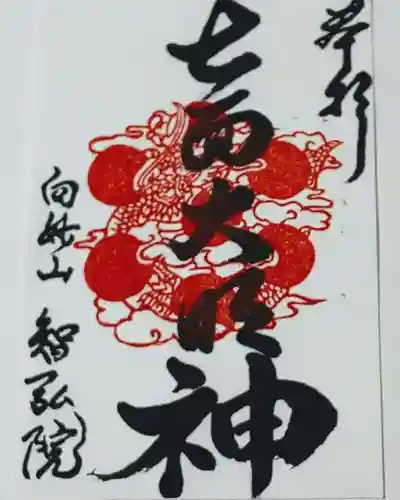 奉拝
七面大明神
向妙山
智弘院